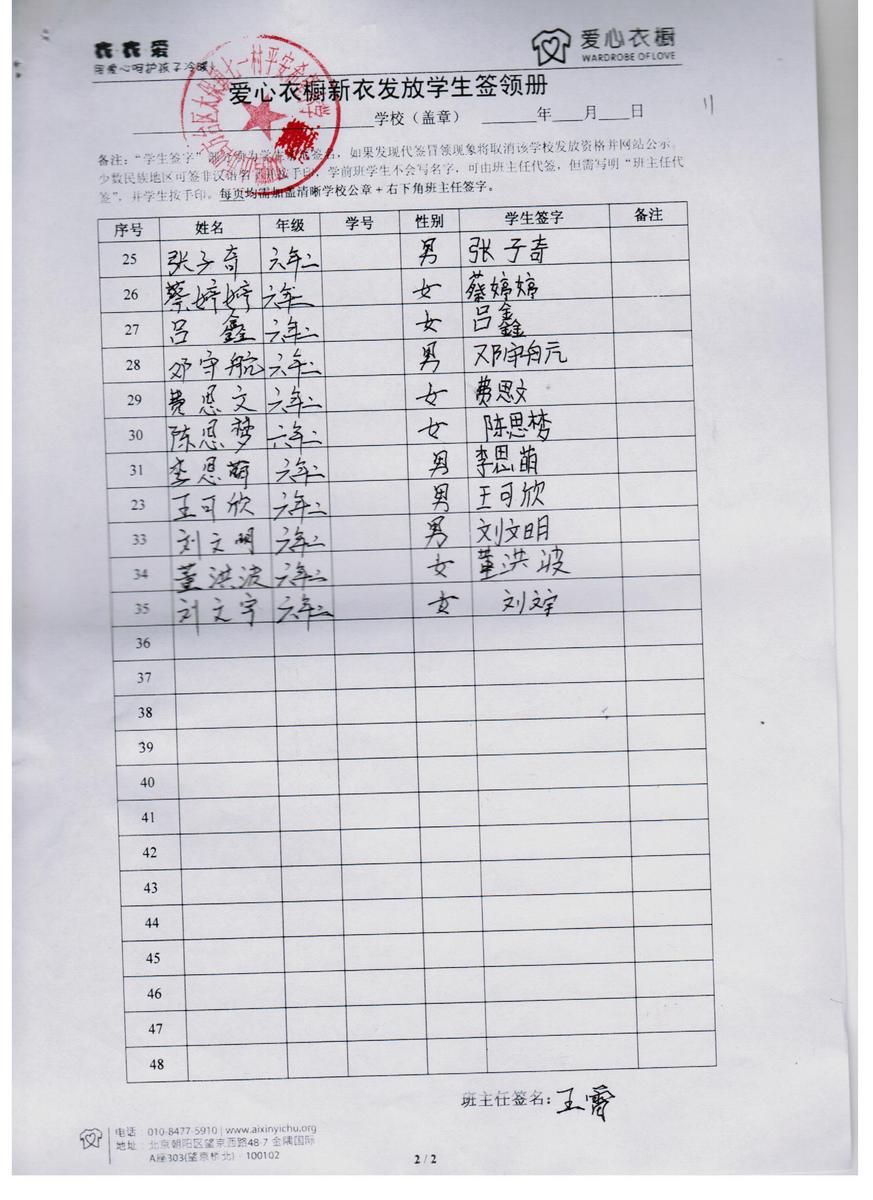 垚垚爱
用爱心呵护孩子冷暖
爱心衣橱
WARDROBE OF LOVE
爱心衣橱新衣发放学生签领册
学校（盖章） 年 月 日
备注："学生签字" 为学生 签名，如果发现代签冒领现象将取消该学校发放资格并网站公示。
少数民族地区可签非汉语名字并按手印，学前班学生不会写名字，可由班主任代签，但需写明"班主任代
签"，并学生按手印。每页均需加盖清晰学校公章+右下角班主任签字。
序号 姓名 年级 学号 性别 学生签字 备注
25 张子奇 六年二 男 张子奇
26 蔡婷婷 六年二 女 蔡婷婷
27 吕鑫 六年二 女 吕鑫
28 邓守航 六年二 男 邓守航
29 费思文 六年二 女 费思文
30 陈思梦 六年二 女 陈思梦
31 李思萌 六年二 男 李思萌
23 王可欣 六年二 男 王可欣
33 刘文明 六年二 男 刘文明
34 董洪波 六年二 女 董洪波
35 刘文宇 六年二 女 刘文宇
36
37
38
39
40
41
42
43
44
45
46
47
48
班主任签名：王霄
电话：010-8477-5910 | www.aixinyichu.org
地址：北京朝阳区望京西路48-7 金隅国际
A座303(望京桥北) · 100102
2 / 2